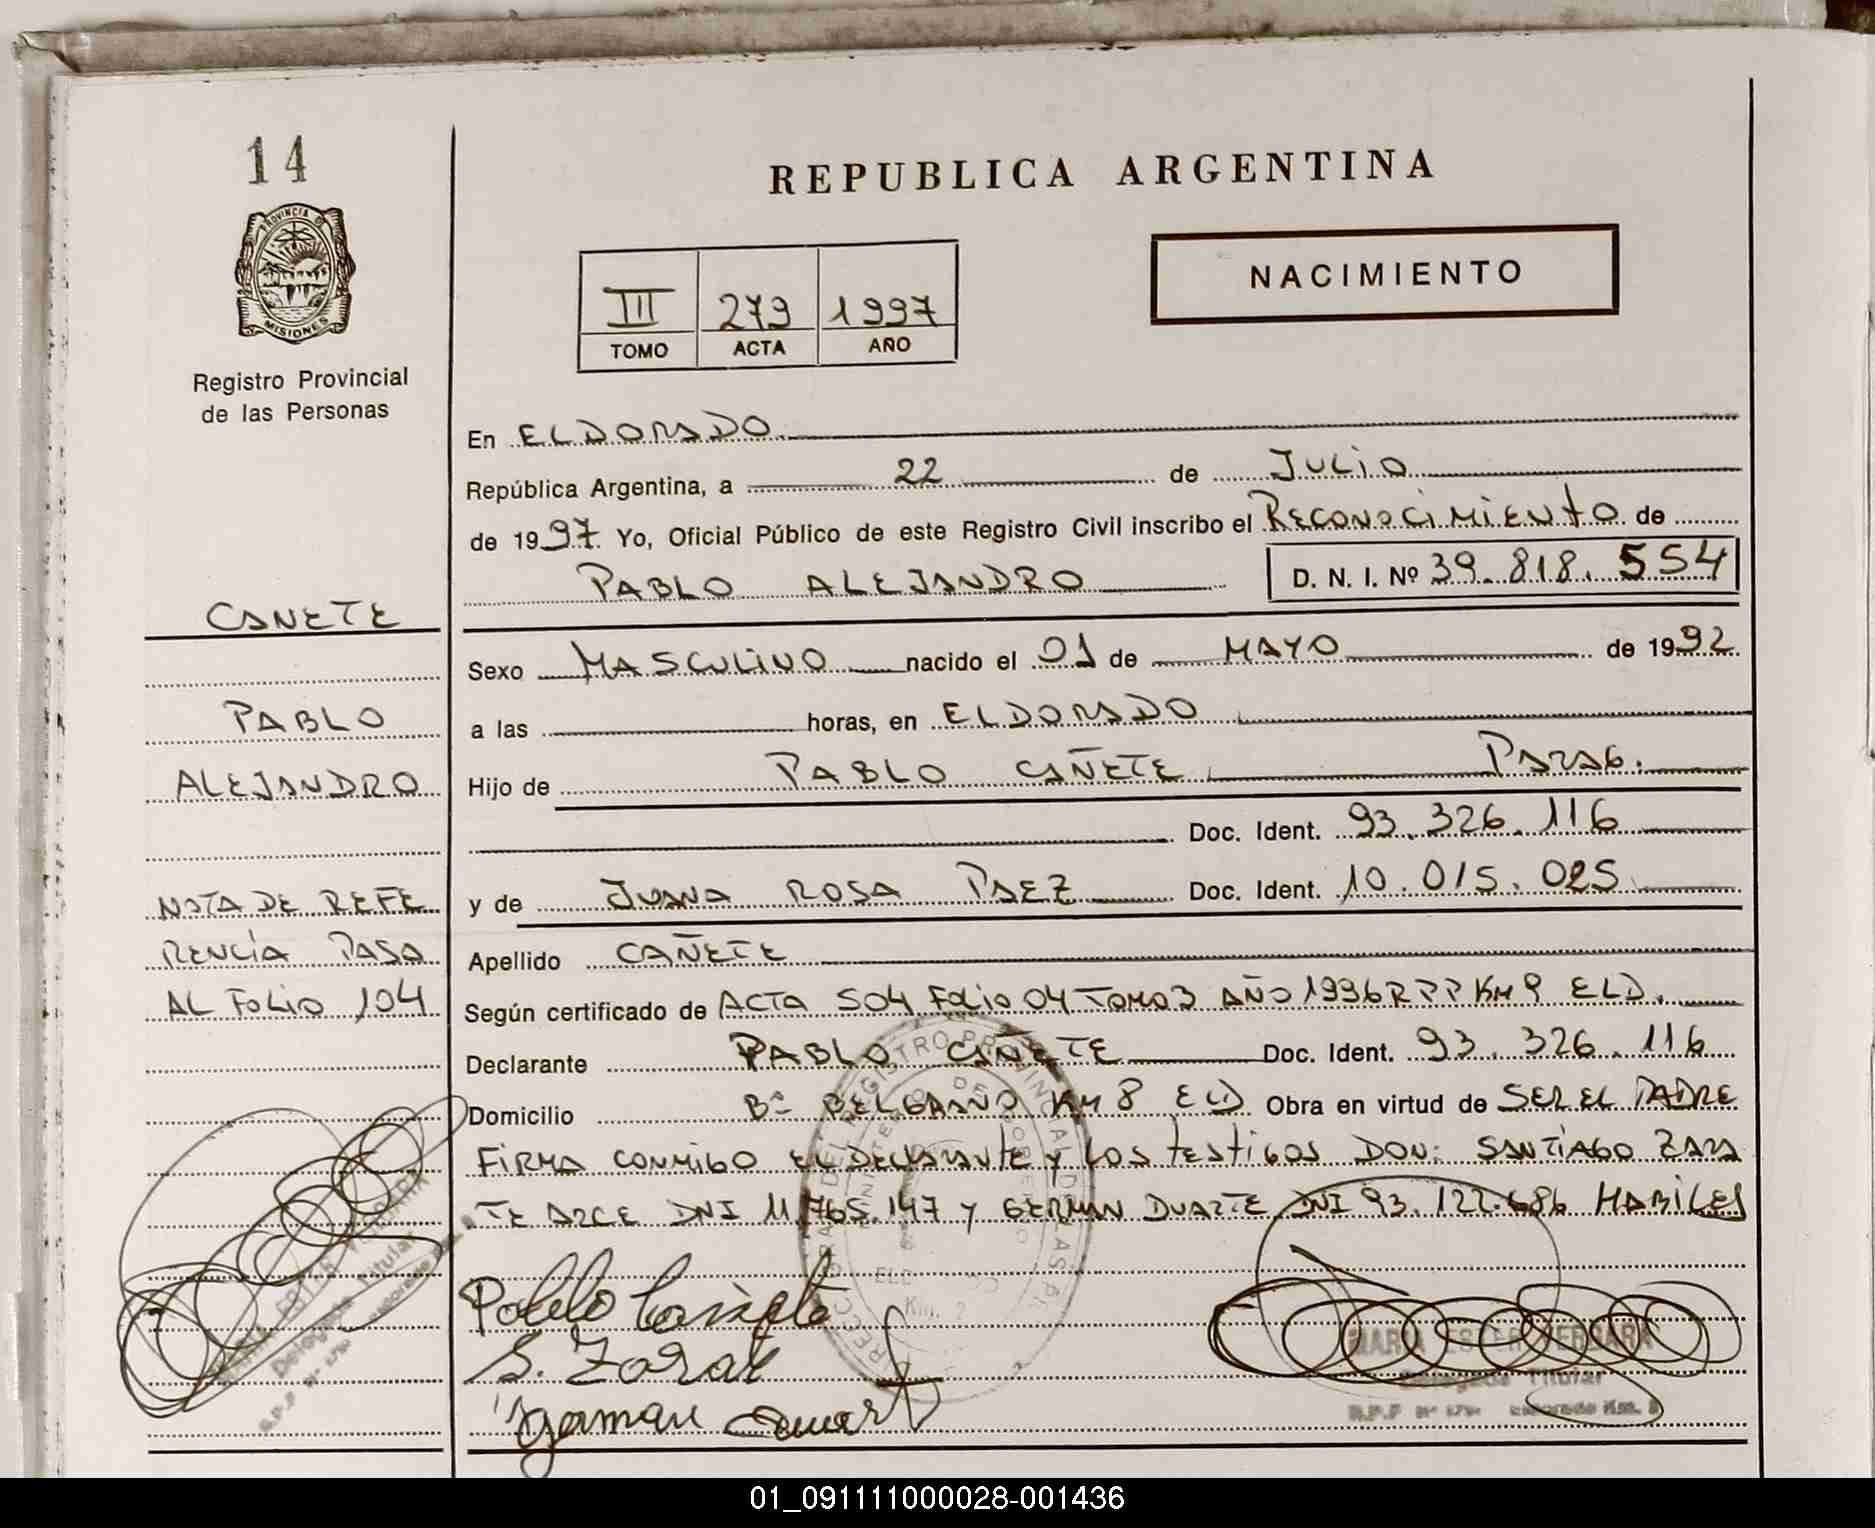 14
PROVINCIA DE
MISIONES
Registro Provincial
de las Personas
CANETE
PABLO
ALEJANDRO
NOTA DE REFE
RENCIA PASA
AL FOLIO 104
REPUBLICA ARGENTINA
NACIMIENTO
III 279 1997
TOMO ACTA AÑO
En ELDORADO
República Argentina, a 22 de JULIO
de 1997 Yo, Oficial Público de este Registro Civil inscribo el RECONOCIMIENTO de
PABLO ALEJANDRO D. N. I. Nº 39.818.554
Sexo MASCULINO nacido el 01 de MAYO de 1992
a las horas, en ELDORADO
Hijo de PABLO CAÑETE PARAG.
Doc. Ident. 93.326.116
y de JUANA ROSA PAEZ Doc. Ident. 10.015.025
Apellido CAÑETE
Según certificado de ACTA 504 FOLIO 04 TOMO 3 AÑO 1996 RPP KM 9 ELD.
Declarante PABLO CAÑETE Doc. Ident. 93.326.116
Domicilio Bº BELGRANO KM 8 ELD Obra en virtud de SER EL PADRE
FIRMA CONMIGO EL DECLARANTE Y LOS TESTIGOS DON: SANTIAGO ZARA
TE ARCE DNI 11.765.147 Y GERMAN DUARTE DNI 93.122.686 HABILES
Pablo Cañete
S. Zarate
German Duarte
MARIA ESTER VERGARA
Delegada Titular
01_091111000028-001436